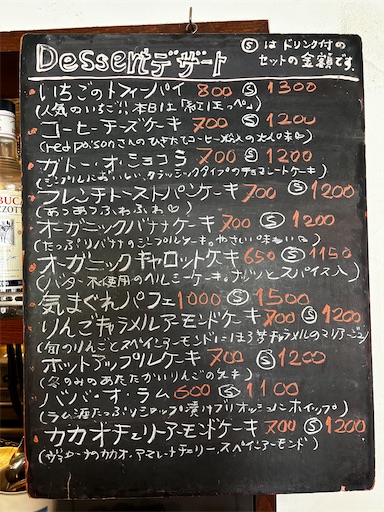 Dessert デザート
Ⓢは ドリンク付の
セットの金額です。
いちごのトフィーパイ 800 Ⓢ 1300
(人気のいちご!! 本日は「紅ほっぺ」)
コーヒーチーズケーキ 700 Ⓢ 1200
(red poisonさんのひきたてコーヒー粉入の大人味)
ガトー・オ・ショコラ 700 Ⓢ 1200
(シンプルにおいしい、クラッシックタイプのチョコレートケーキ)
フレンチトーストパンケーキ 700 Ⓢ 1200
(あつあつふわふわ)
オーガニックバナナケーキ 700 Ⓢ 1200
(たっぷりバナナのシンプルケーキ。やさしい味わい)
オーガニックキャロットケーキ 650 Ⓢ 1150
(バター不使用のヘルシーケーキ。ナッツとスパイス入)
気まぐれパフェ 1000 Ⓢ 1500
りんごキャラメルアーモンドケーキ 700 Ⓢ 1200
(旬のりんごとスペインアーモンドにほろ苦キャラメルのマリアージュ)
ホットアップルケーキ 700 Ⓢ 1200
(冬のみのあたたかいりんごのケーキ)
ババ・オ・ラム 600 Ⓢ 1100
(ラム酒たっぷりシロップ漬けブリオッシュにホイップ)
カカオチェリーアーモンドケーキ 700 Ⓢ 1200
(ヴァローナのカカオ、アマレーナチェリー、スペインアーモンド)